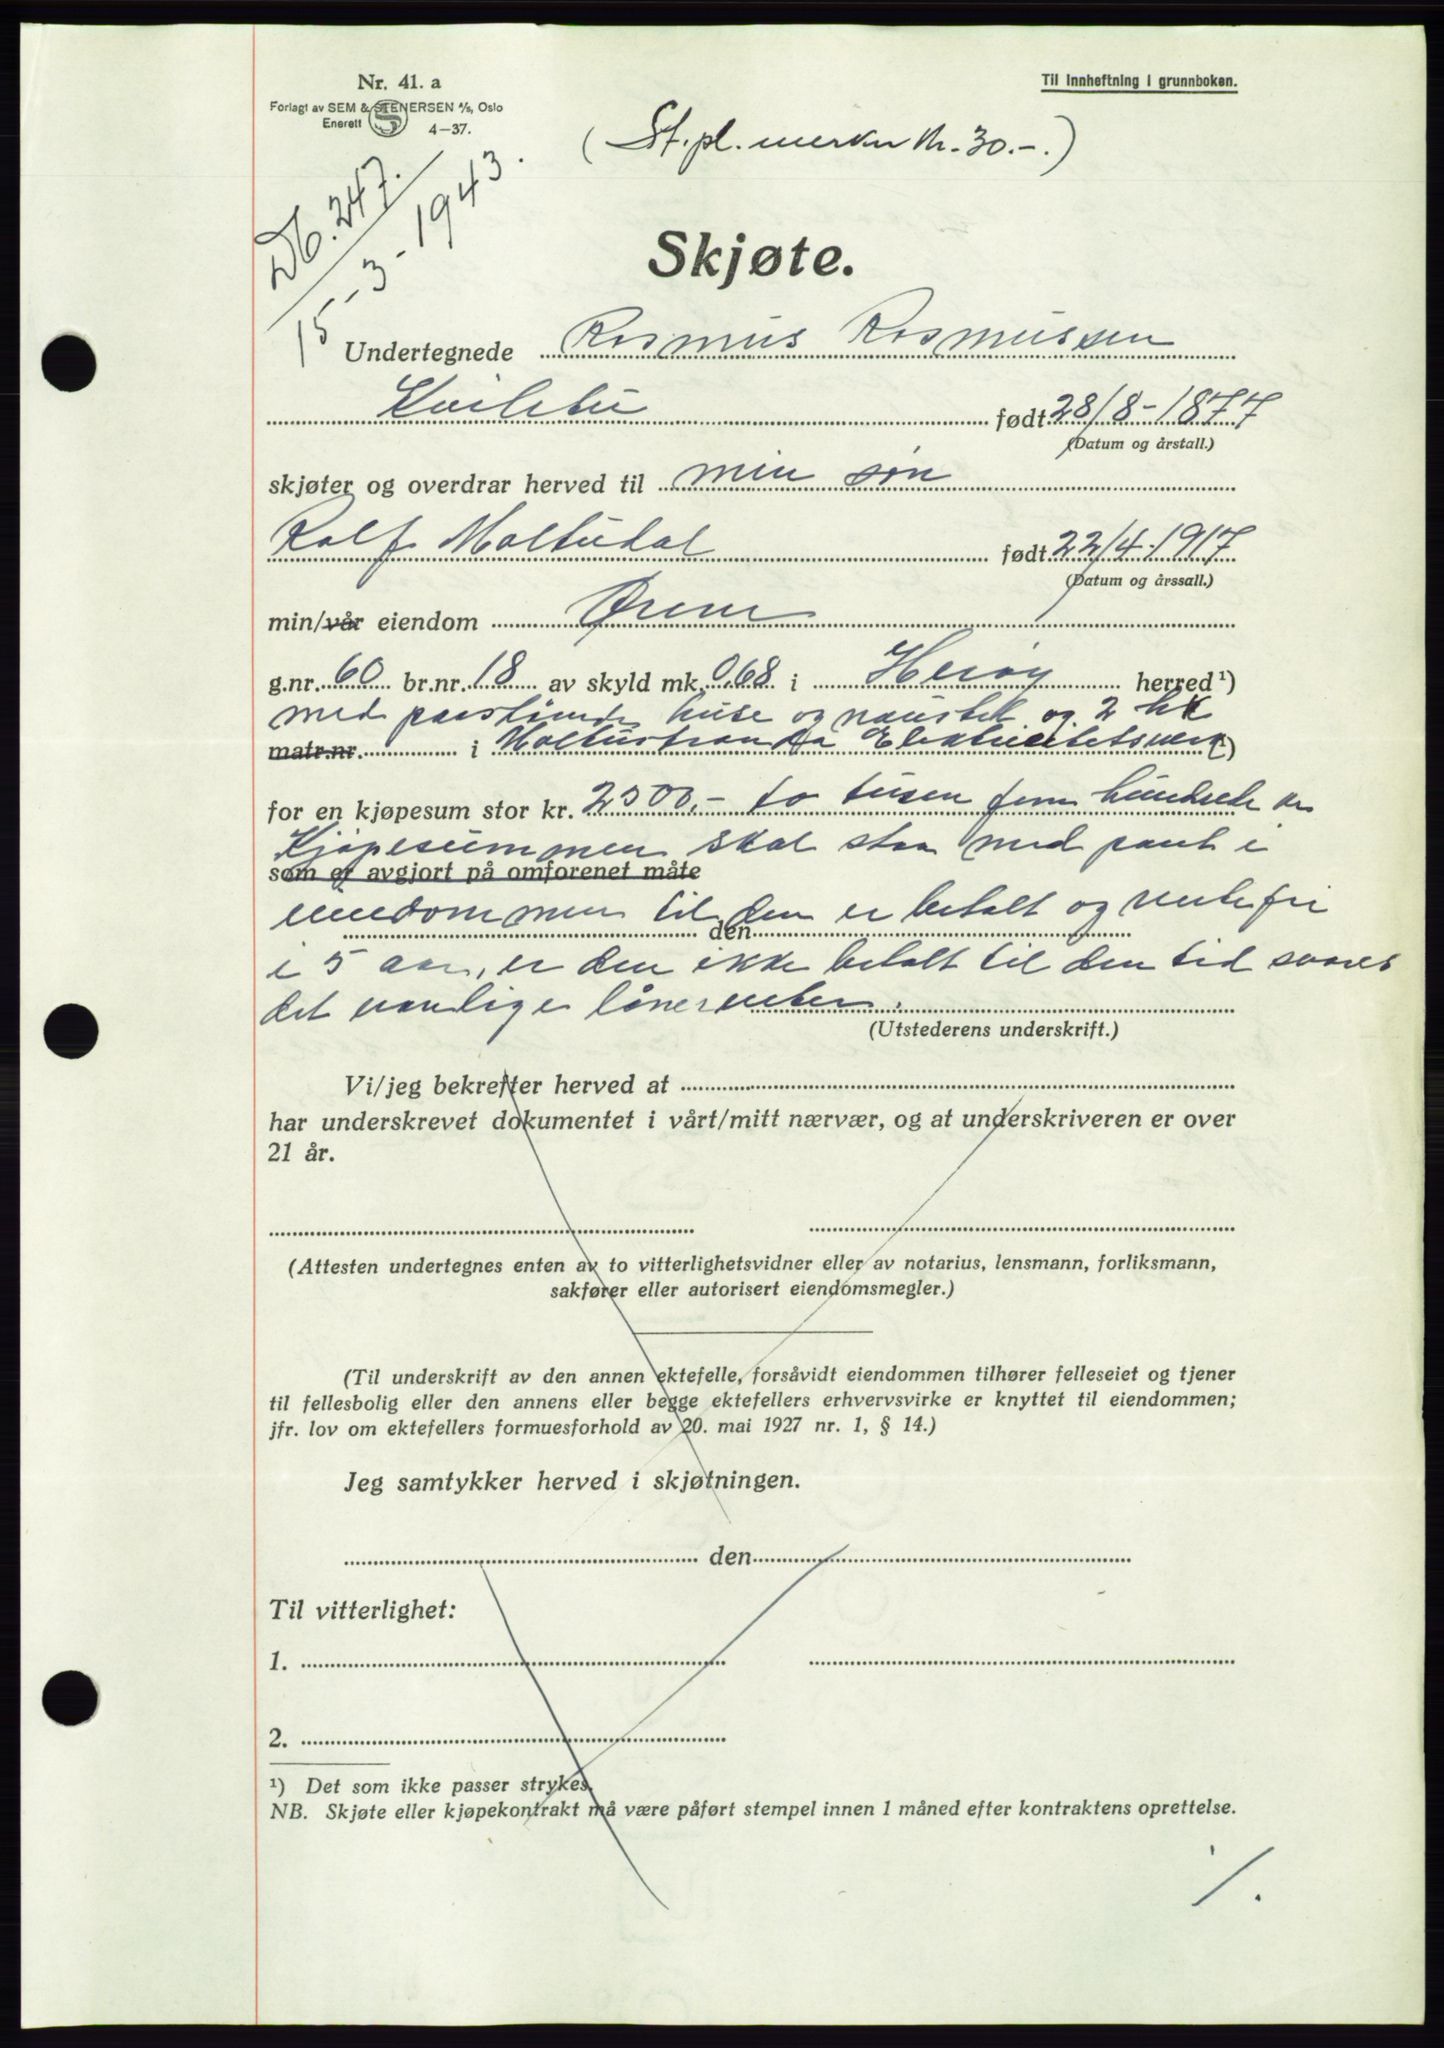 Nr. 41. a
Til innheftning i grunnboken.
Forlagt av SEM & STENERSEN A/S, Oslo
Enerett
4-37.
(St.pl. merker kr. 30.-.)
Db. 247.
15-3-1943.
Skjøte.
Undertegnede Rasmus Rasmussen
født 28/8-1877
(Datum og årstall.)
skjøter og overdrar herved til min søn
Rolf Moltudal født 22/4-1917
(Datum og årssall.)
min/vår eiendom
g.nr. 60 br.nr. 18 av skyld mk. 0,68 i Herøy herred¹)
med paastående huse og naustet og 2 hk
matr.nr. i Moltustranda Elektricitetsverk)
for en kjøpesum stor kr. 2500,- to tusen fem hundrede kr
Kjøpesummen skal staa med pant i
som er avgjort på omforenet måte
eiendommen til den er betalt og rentefri
den
i 5 aar, er den ikke betalt til den tid svares
det vanlige lånerenter.
(Utstederens underskrift.)
Vi/jeg bekrefter herved at
har underskrevet dokumentet i vårt/mitt nærvær, og at underskriveren er over
21 år.
(Attesten undertegnes enten av to vitterlighetsvidner eller av notarius, lensmann, forliksmann,
sakfører eller autorisert eiendomsmegler.)
(Til underskrift av den annen ektefelle, forsåvidt eiendommen tilhører felleseiet og tjener
til fellesbolig eller den annens eller begge ektefellers erhvervsvirke er knyttet til eiendommen;
jfr. lov om ektefellers formuesforhold av 20. mai 1927 nr. 1, § 14.)
Jeg samtykker herved i skjøtningen.
den
Til vitterlighet:
1.
2.
¹) Det som ikke passer strykes.
NB. Skjøte eller kjøpekontrakt må være påført stempel innen 1 måned efter kontraktens oprettelse.
./.